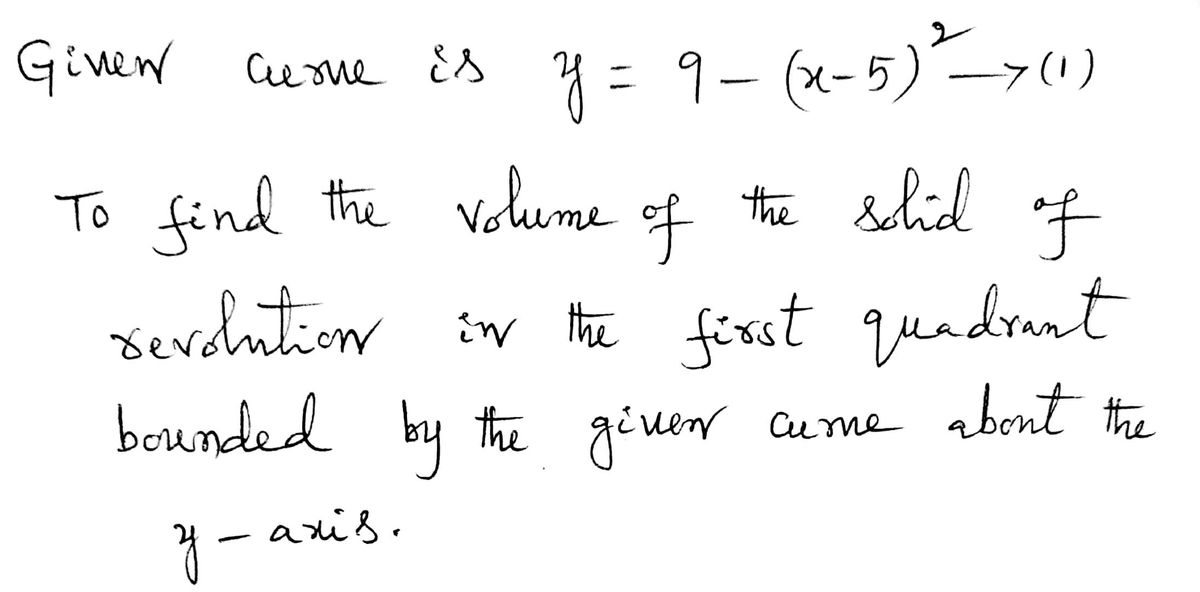 Given curve is y = 9 - (x-5)² → (1)
To find the volume of the solid of
revolution in the first quadrant
bounded by the given curve about the
y - axis.